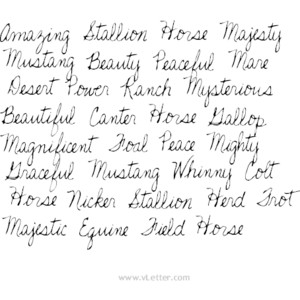 Amazing Stallion Horse Majesty
Mustang Beauty Peaceful Mare
Desert Power Ranch Mysterious
Beautiful Canter Horse Gallop
Magnificent Foal Peace Mighty
Graceful Mustang Whinny Colt
Horse Nicker Stallion Herd Trot
Majestic Equine Field Horse
www.vLetter.com